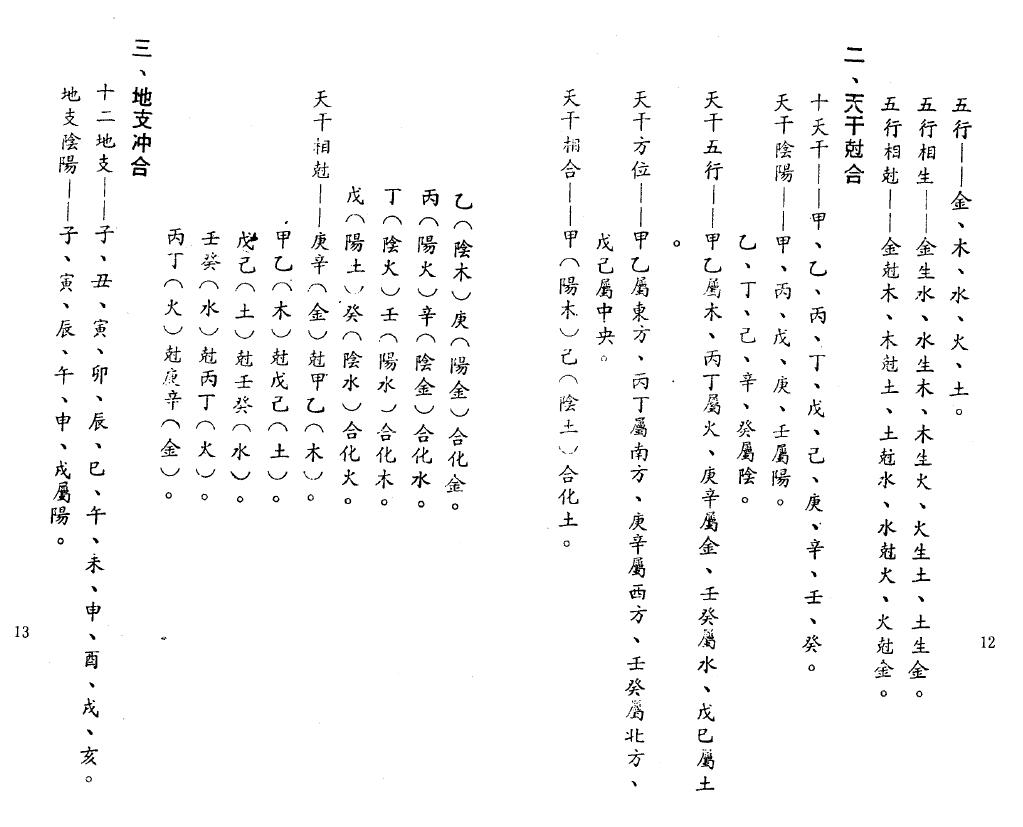 五行——金、木、水、火、土。
五行相生——金生水、水生木、木生火、火生土、土生金。
五行相尅——金尅木、木尅土、土尅水、水尅火、火尅金。
二、天干尅合
十天干——甲、乙、丙、丁、戊、己、庚、辛、壬、癸。
天干陰陽——甲、丙、戊、庚、壬屬陽。
乙、丁、己、辛、癸屬陰。
天干五行——甲乙屬木、丙丁屬火、庚辛屬金、壬癸屬水、戊己屬土
。
天干方位——甲乙屬東方、丙丁屬南方、庚辛屬西方、壬癸屬北方、
戊己屬中央。
天干相合——甲(陽木)己(陰土)合化土。
12
乙(陰木)庚(陽金)合化金。
丙(陽火)辛(陰金)合化水。
丁(陰火)壬(陽水)合化木。
戊(陽土)癸(陰水)合化火。
天干相尅——庚辛(金)尅甲乙(木)。
甲乙(木)尅戊己(土)。
戊己(土)尅壬癸(水)。
壬癸(水)尅丙丁(火)。
丙丁(火)尅庚辛(金)。
三、地支冲合
十二地支——子、丑、寅、卯、辰、巳、午、未、申、酉、戌、亥。
地支陰陽——子、寅、辰、午、申、戌屬陽。
13